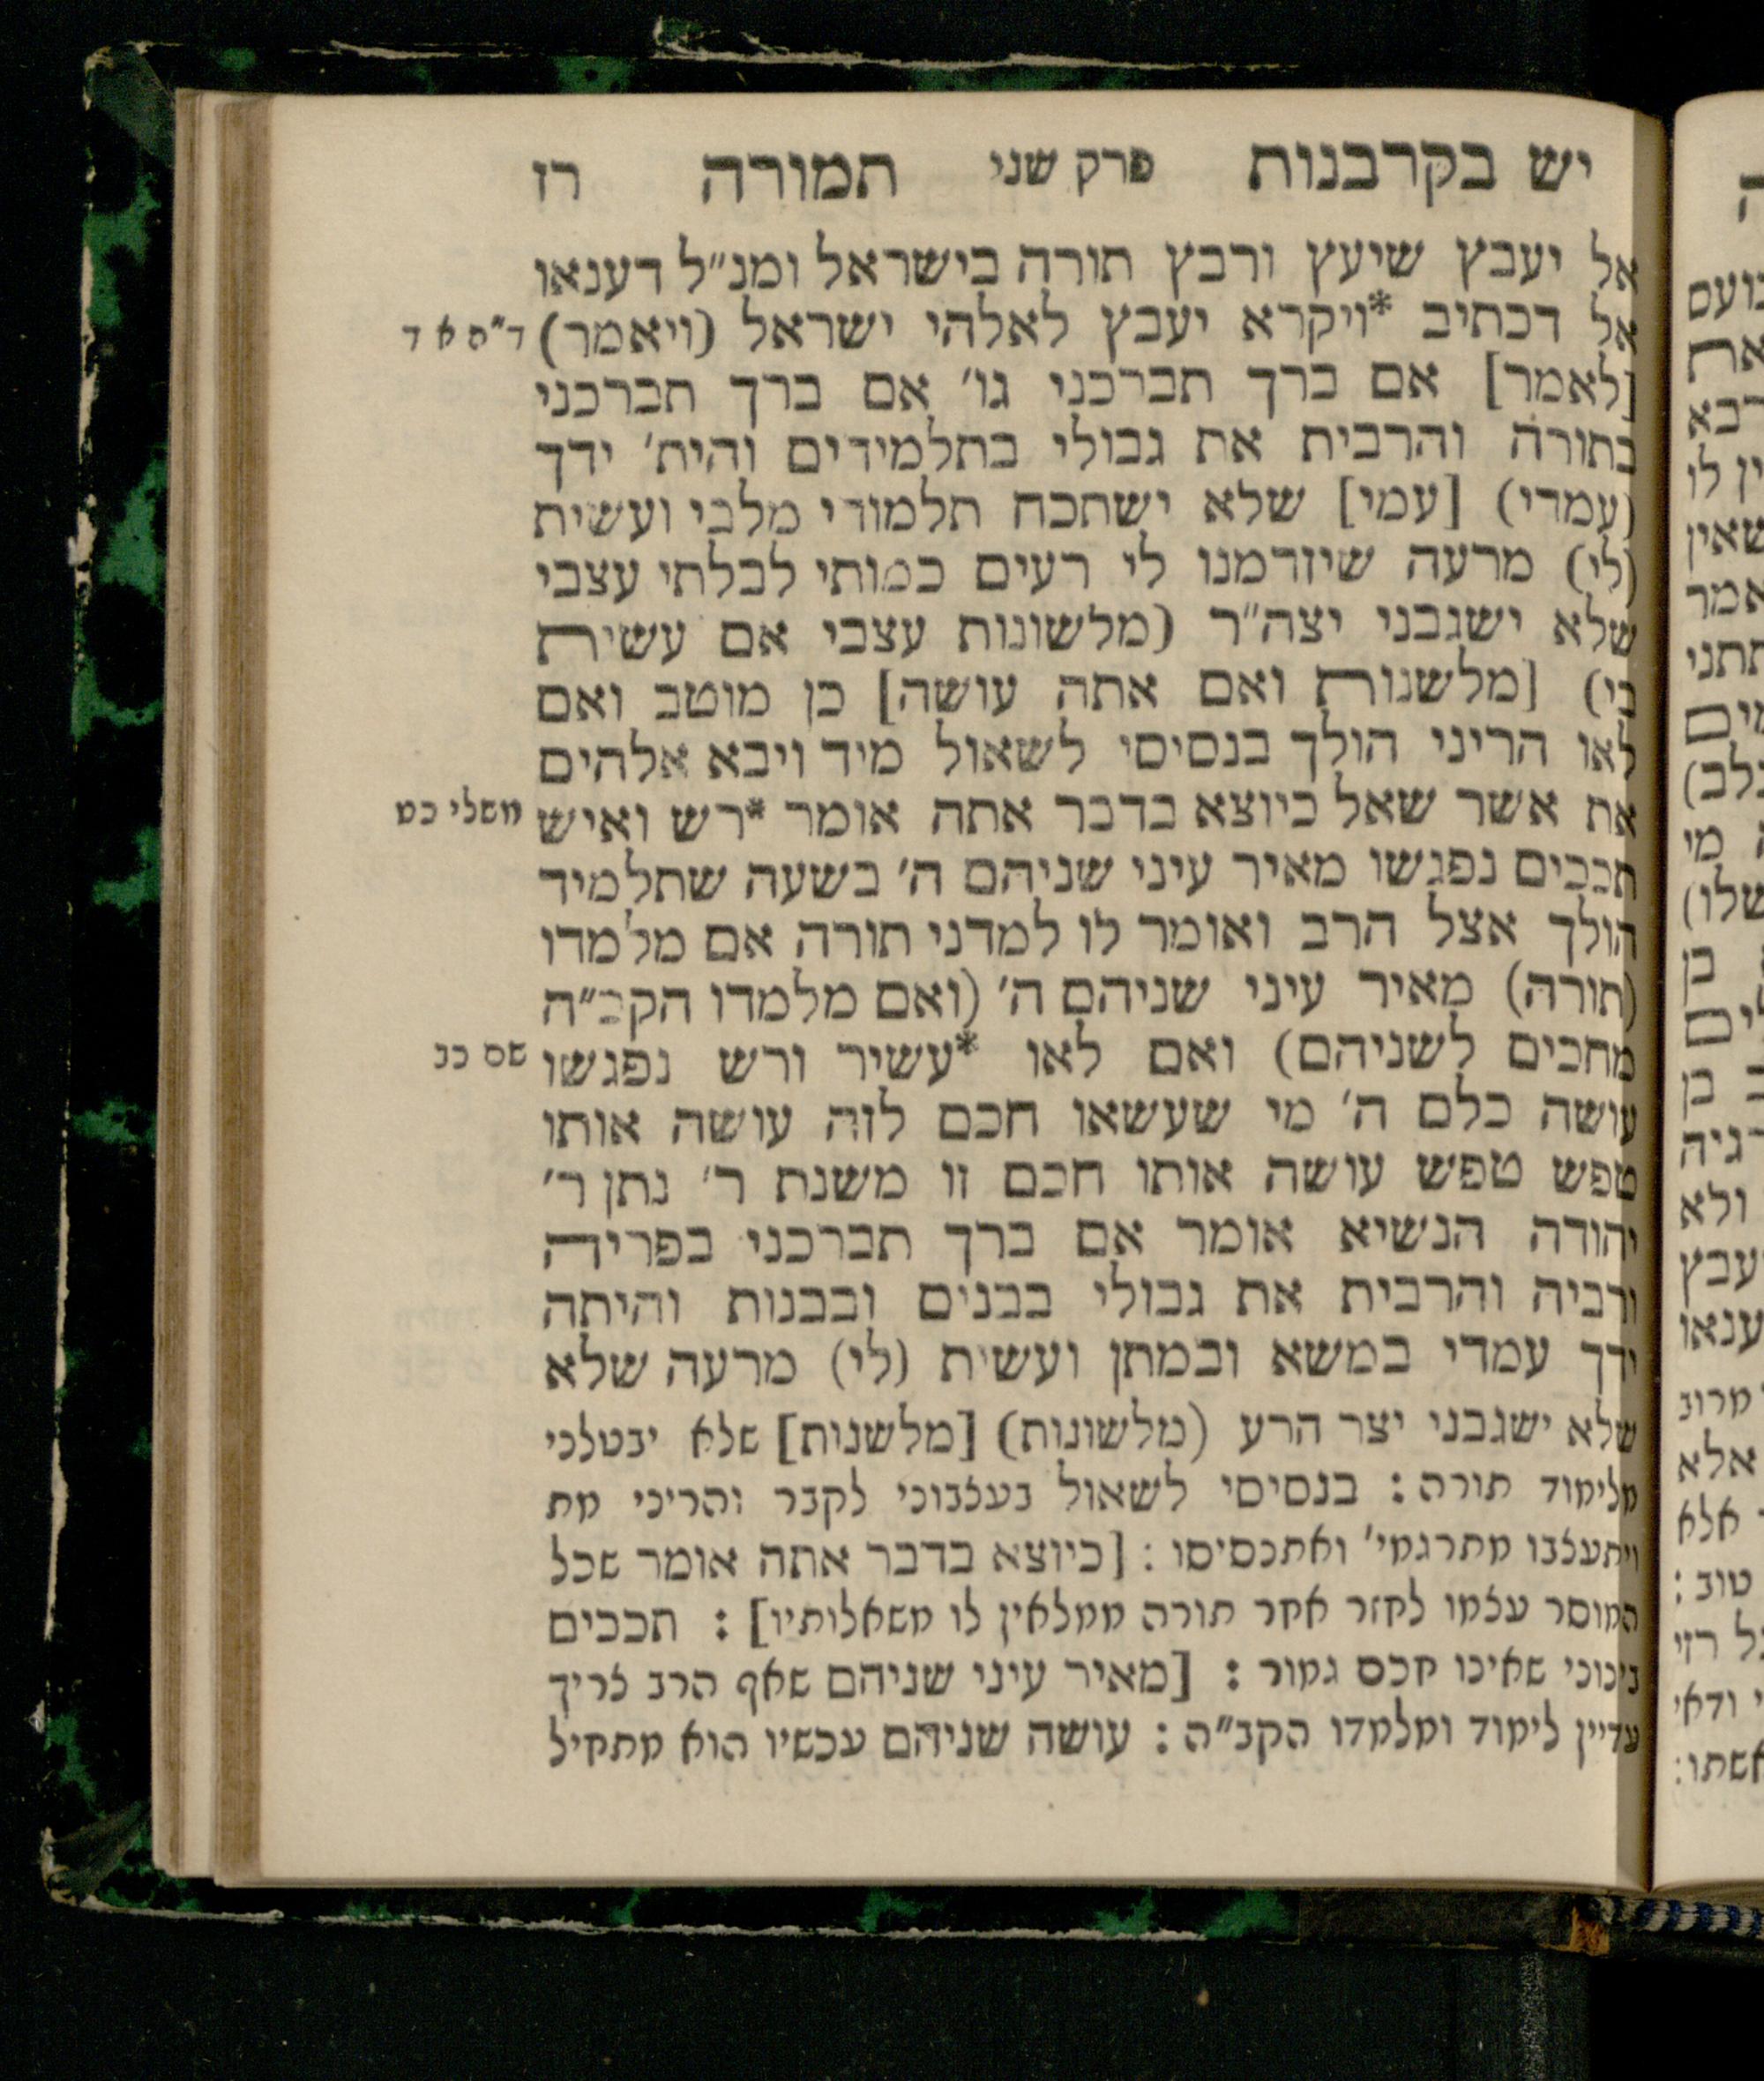 יש בקרבנות פרק שני תמורה רז
אל יעבץ שיעץ ורבץ תורה בישראל ומנ״ל דענאו
אל דכתיב *ויקרא יעבץ לאלהי ישראל (ויאמר) ד״ה א ד
[לאמר] אם ברך תברכני גו׳ אם ברך תברכני
בתורה והרבית את גבולי בתלמידים והית׳ ידך
(עמדי) [עמי] שלא ישתכח תלמודי מלבי ועשית
(לי) מרעה שיזדמנו לי רעים כמותי לבלתי עצבי
שלא ישגבני יצה״ר (מלשונות עצבי אם עשית
כי) [מלשנות ואם אתה עושה] כן מוטב ואם
לאו הריני הולך בנסיסי לשאול מיד ויבא אלהים
את אשר שאל כיוצא בדבר אתה אומר *רש ואיש משלי כט
תככים נפגשו מאיר עיני שניהם ה׳ בשעה שתלמיד
הולך אצל הרב ואומר לו למדני תורה אם מלמדו
(תורה) מאיר עיני שניהם ה׳ (ואם מלמדו הקב״ה
מחכים לשניהם) ואם לאו *עשיר ורש נפגשו שם כב
עושה כלם ה׳ מי שעשאו חכם לזה עושה אותו
טפש טפש עושה אותו חכם זו משנת ר׳ נתן ר׳
יהודה הנשיא אומר אם ברך תברכני בפריה
ורביה והרבית את גבולי בבנים ובבנות והיתה
ידך עמדי במשא ובמתן ועשית (לי) מרעה שלא
שלא ישגבני יצר הרע (מלשונות) [מלשנות] שלא יבטלני
מלימוד תורה : בנסיסי לשאול בעצבוני לקבר והריני מת
ויתעצבו מתרגמי׳ ואתנסיסו : [כיוצא בדבר אתה אומר שכל
המוסר עצמו לחזר אחר תורה ממלאין לו משאלותיו] : תככים
בינוני שאינו חכם גמור : [מאיר עיני שניהם שאף הרב צריך
עדיין לימוד ומלמדו הקב״ה : עושה שניהם עכשיו הוא מתחיל